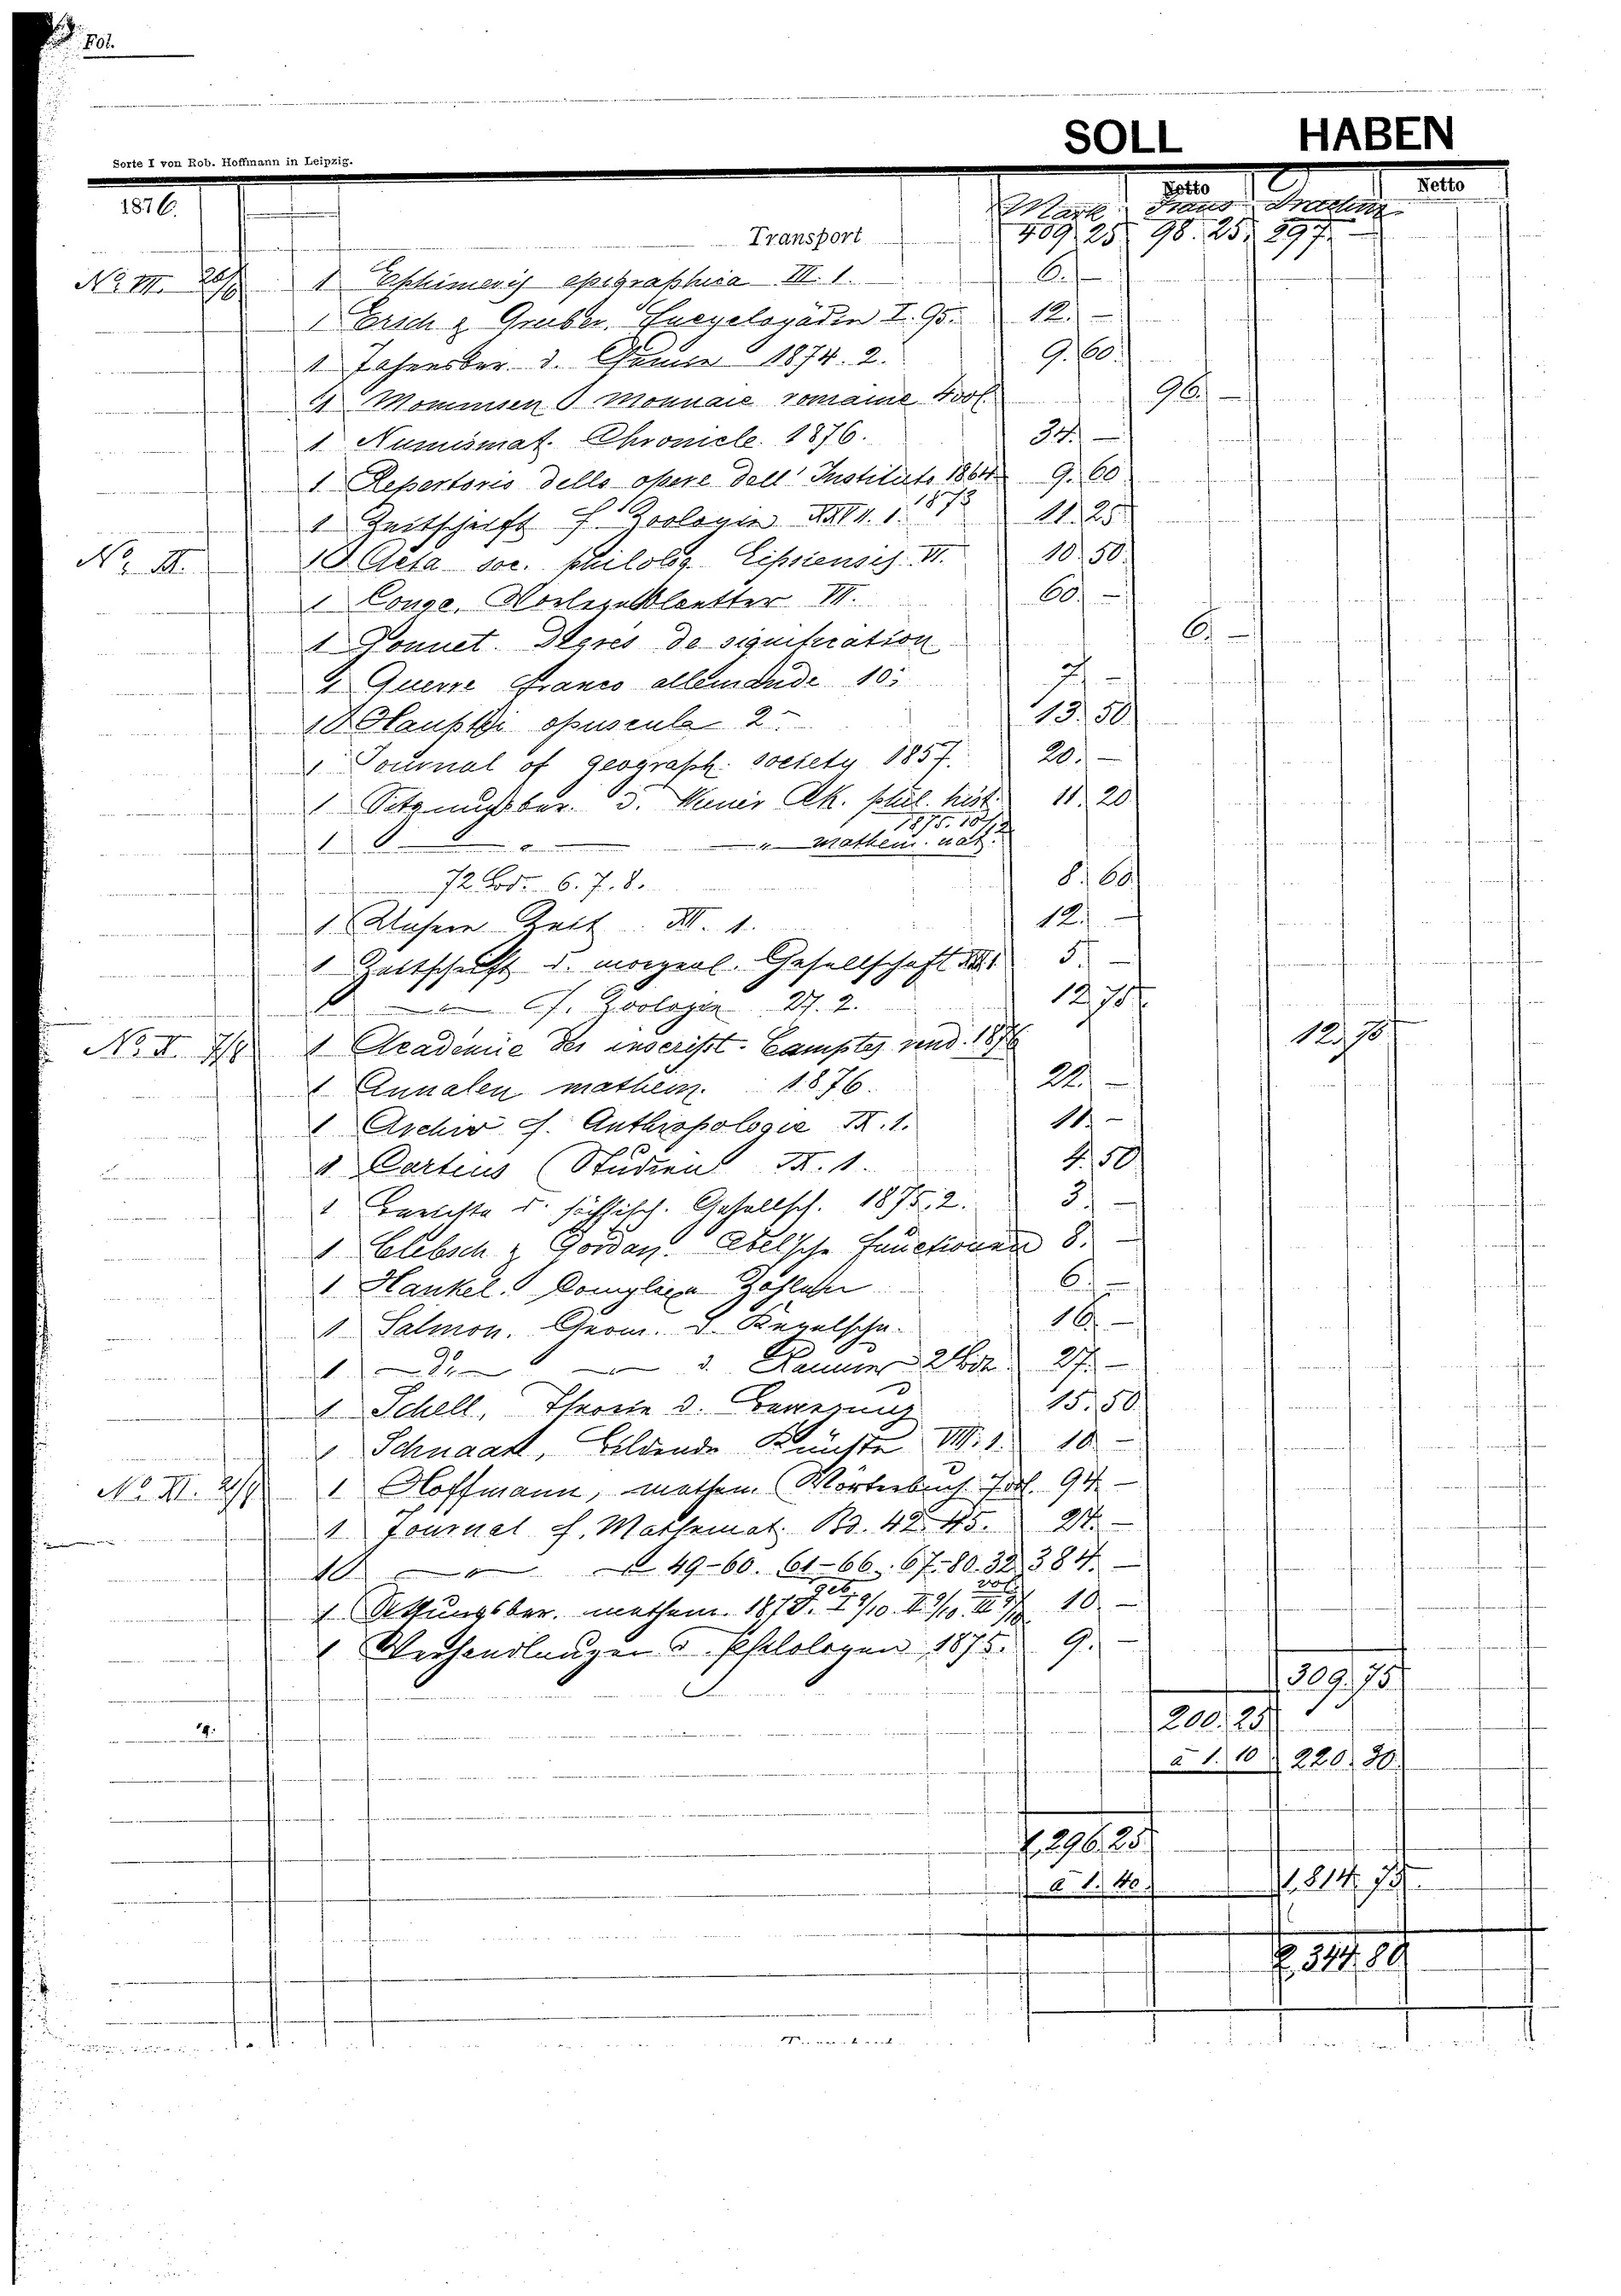 Fol.
SOLL HABEN
Sorte I von Rob. Hoffmann in Leipzig.
Netto Netto
1876. Mark Francs
Transport 409 25 98. 25. 297. —
1 Ephimeris epigraphica III. 1. 6. —
1 Ersch & Gruber, Encyclopädie I. 95. 12. —
1 Jahresber. d. Chemie 1874. 2. 9. 60.
1 Mommsen monnaie romaine 4 vol. 96. —
1 Numismat. Chronicle. 1876. 34. —
1 Repertorio delle opere dell' Instituto 1864 9. 60
1 Zeitschrift f. Zoologie 1. 1873 11. 25
No. 1 Acta soc. philolog. Lipsiensis VI. 10. 50.
1 Conze, Vorlegeblaetter VII. 60. —
1 Ponnet. Degrés de signification 6. —
1 Guerre franco allemande 10. 7. —
1 Hauptii opuscula 2. 13. 50
1 Journal of geograph. society 1857. 20. —
1 Sitzungsber. d. Wiener Ak. phil. hist. 11. 20
1875. 10/12
1 " " mathem. nat.
72 Bd. 6. 7. 8. 8. 60
1 Unsere Zeit XII. 1. 12. —
1 Zeitschrift d. morgenl. Gesellschaft 5. —
1 " f. Zoologie 27. 2. 12. 75
1 Académie des inscript. Comptes rend. 1876 12. 75
1 Annalen mathem. 1876. 22. —
1 Archiv f. Anthropologie IX. 1. 11. —
1 Curtius Studien IX. 1. 4. 50
1 Berichte d. sächsisch. Gesellsch. 1875. 2. 3. —
1 Clebsch & Gordan. Abel'sche Functionen 8. —
1 Hankel. Complexe Zahlen 6. —
1 Salmon. Geom. d. Kegelschn. 16. —
1 do " d. Raumes 2 Bde 27. —
1 Schell, Theorie d. Bewegung 15. 50
1 Schnaase, bildende Künste VIII. 1. 10. —
1 Hoffmann, mathem. Wörterbuch 7 vol. 94. —
1 Journal f. Mathemat. Bd. 42. 45. 24. —
1 " " 49-60. 61-66. 67-80. 32 384. —
1 Sitzungsber. mathem. 1875. I 9/10. II 9/10. III 10. —
1 Verhandlungen d. Philologen 1875. 9. —
309. 75
200. 25
à 1. 10 220. 30.
1,296. 25
à 1. 40. 1,814. 75
2,344. 80